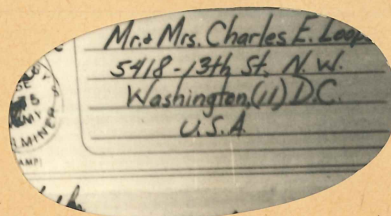 Mr. & Mrs. Charles E.
5418 - 13th St. N.W.
Washington, (11) D.C.
U.S.A